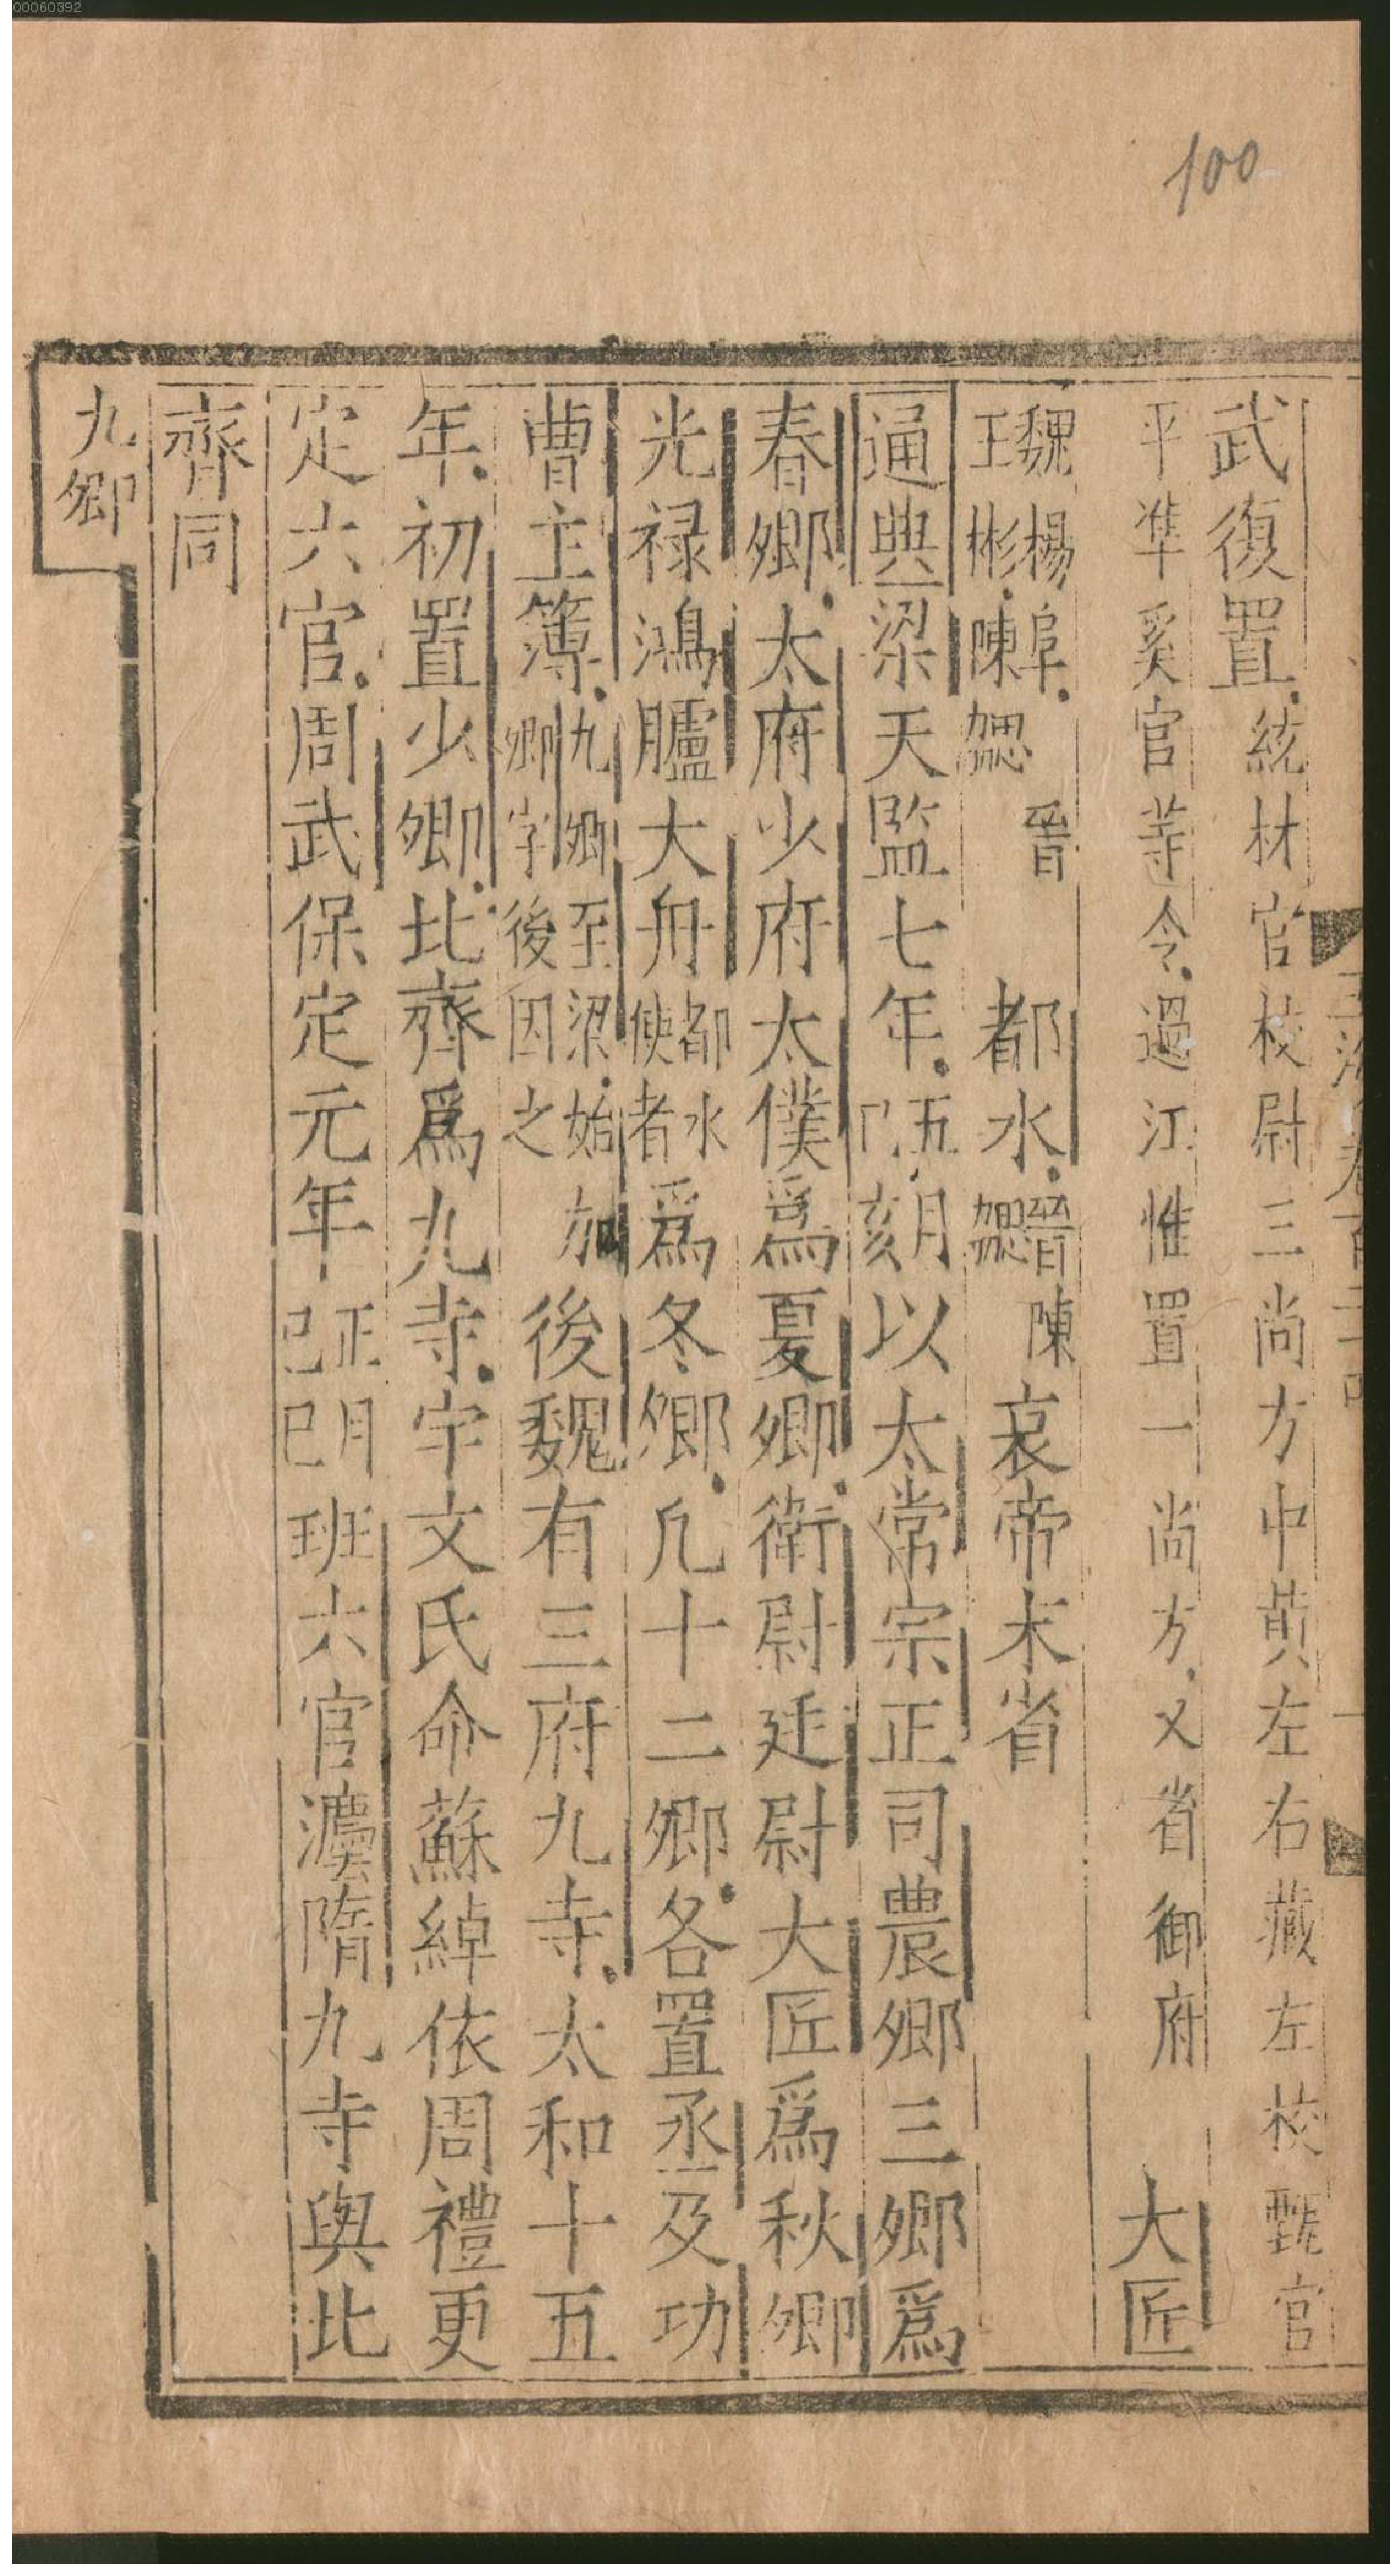 00060392
100
武復置統材官校尉三尚方中黃左右藏左校甄官
平準奚官等令過江惟置一尚方又省御府 大匠
魏楊阜王彬陳勰 晉 都水晉陳勰 哀帝末省
通典梁天監七年五月以太常宗正司農卿三卿爲
春卿太府少府太僕爲夏卿衛尉廷尉大匠爲秋卿
光禄鴻臚大舟都水使者爲冬卿凡十二卿各置丞及功
曹主簿九卿至梁始加卿字後因之後魏有三府九寺太和十五
年初置少卿北齊爲九寺宇文氏命蘇綽依周禮更
定六官周武保定元年正月己巳班六官灋隋九寺與北
齊同
九卿